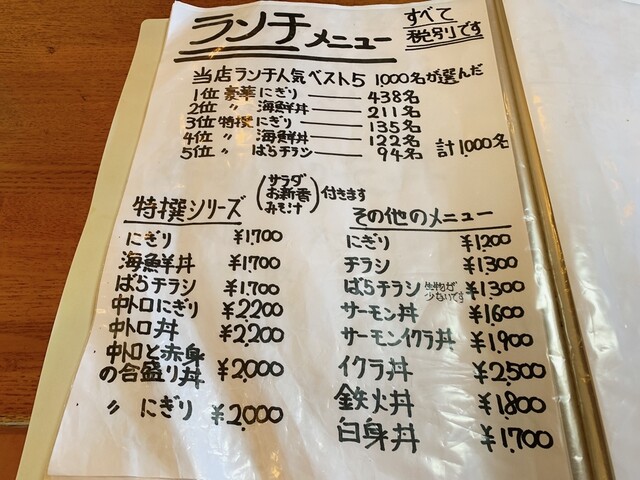 ランチメニュー
すべて
税別です
当店ランチ人気ベスト5 1000名が選んだ
1位 豪華にぎり ― 438名
2位 〃 海鮮丼 ― 211名
3位 特撰にぎり ― 135名
4位 〃 海鮮丼 ― 122名
5位 〃 ばらチラシ ― 94名 計1,000名
特撰シリーズ
(サラダ
お新香
みそ汁)付きます
にぎり ¥1,700
海鮮丼 ¥1,700
ばらチラシ ¥1,700
中トロにぎり ¥2,200
中トロ丼 ¥2,200
中トロと赤身
の合盛り丼 ¥2,000
〃 にぎり ¥2,000
その他のメニュー
にぎり ¥1,200
チラシ ¥1,300
ばらチラシ 生物が少ないです ¥1,300
サーモン丼 ¥1,600
サーモンイクラ丼 ¥1,900
イクラ丼 ¥2,500
鉄火丼 ¥1,800
白身丼 ¥1,700